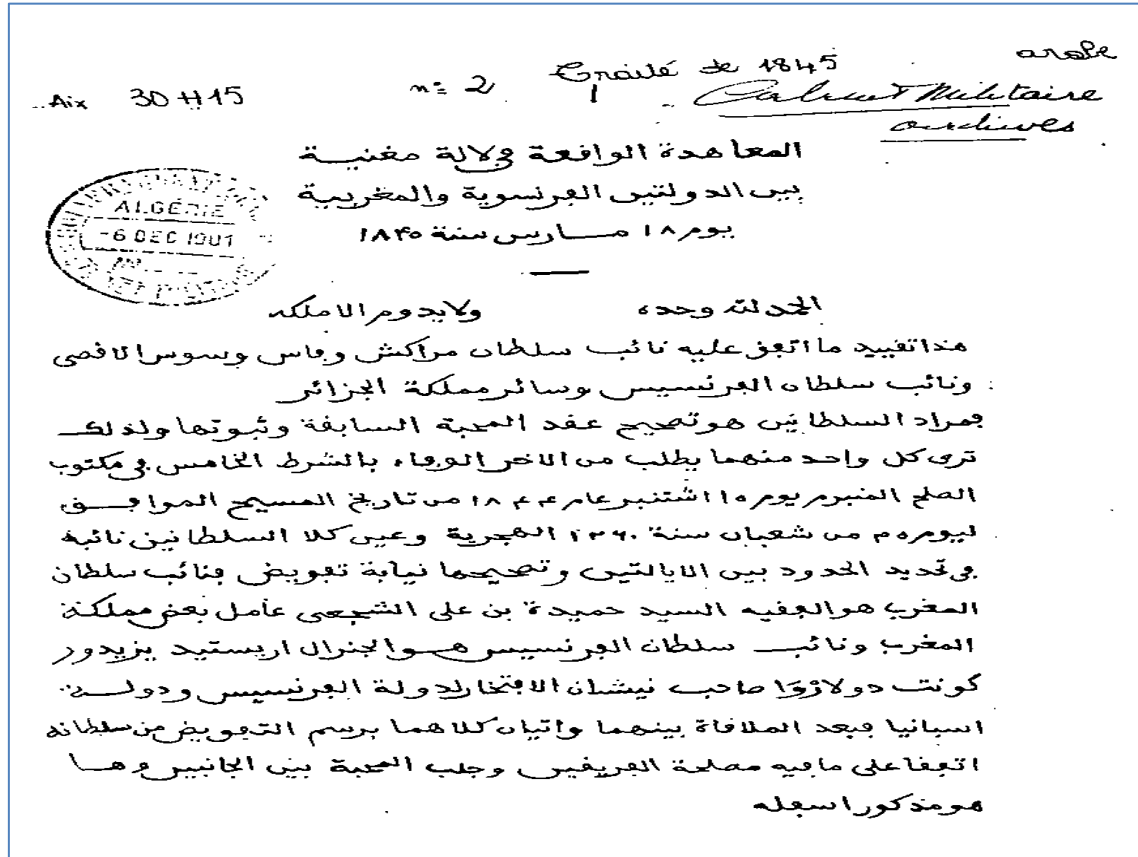 Aix 30 H 15 n° 2 Traité de 1845 arabe
Cabinet Militaire
archives
المعاهدة الواقعة في لالة مغنيــة
بين الدولتين الفرنسوية والمغربية
يوم ١٨ مــارس سنة ١٨٤٥
ALGÉRIE
-6 DEC 1901
الحمد لله وحده ولا يدوم الا ملكه
هذا تقييد ما اتفق عليه نائب سلطان مراكش وفاس وسوس الاقصى
ونائب سلطان الفرنسيس وسائر مملكة الجزائر
فمراد السلطانين هو تصحيح عقد المحبة السابقة وثبوتها ولذلك
ترى كل واحد منهما يطلب من الاخر الوفاء بالشرط الخامس في مكتوب
الصلح المنبرم يوم ١٠ اشتنبر عام ١٨٤٤ من تاريخ المسيح الموافــق
ليوم ٢٥ من شعبان سنة ١٢٦٠ الهجرية وعين كلا السلطانين نائبه
في تحديد الحدود بين الايالتين وتصحيحها نيابة تفويض فنائب سلطان
المغرب هو الفقيه السيد حميدة بن علي الشجعي عامل بعض مملكة
المغرب ونائب سلطان الفرنسيس هــو الجنرال اريستيد يزيدور
كونت دولارْوَا صاحب نيشان الافتخار لدولة الفرنسيس ودولــة
اسبانيا فبعد الملاقاة بينهما واتيان كلاهما برسم التفويض من سلطانه
اتفقا على ما فيه مصلحة الفريقين وجلب المحبة بين الجانبين وهــا
هو مذكور اسفله